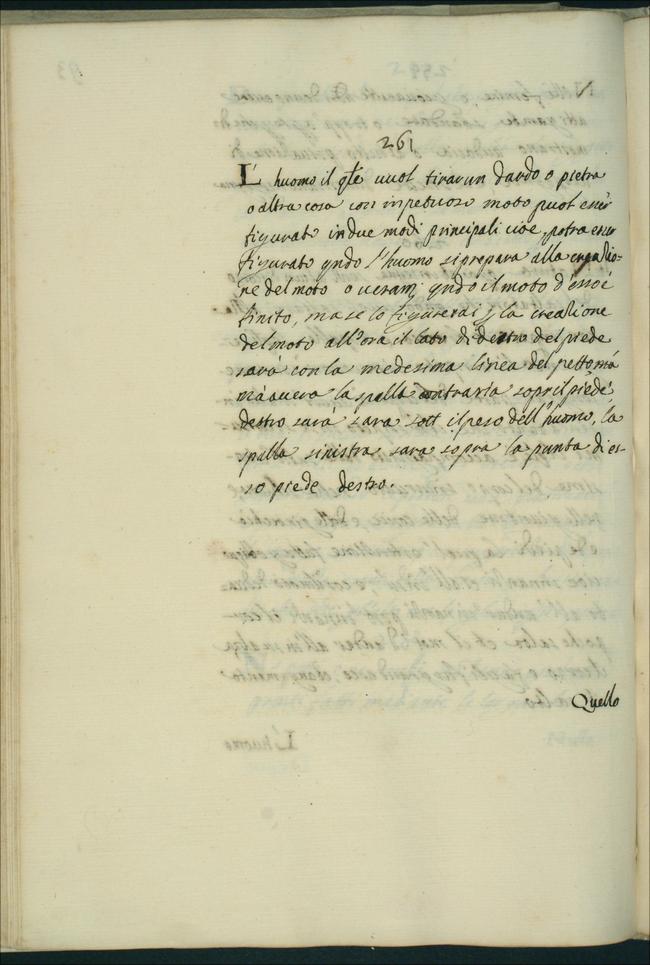 261
L'huomo il qle vuol tirar un dardo o pietra
o altra cosa con inpetuoso moto puol esser
figurato in due modi principali cioe, potra esser
figurato qndo l'huomo si prepara alla creatio-
ne del moto o veram: qndo il moto d'esso è
finito, ma se lo figurerai p la creatione
del moto all'ora il lato di dentro del piede
sarà con la medesima linea del petto mà
mà avera la spalla contraria sopr il piede
destro sarà sara sott il peso dell'huomo, la
spalla sinistra sara sopra la punta di es-
so piede destro.
Quello